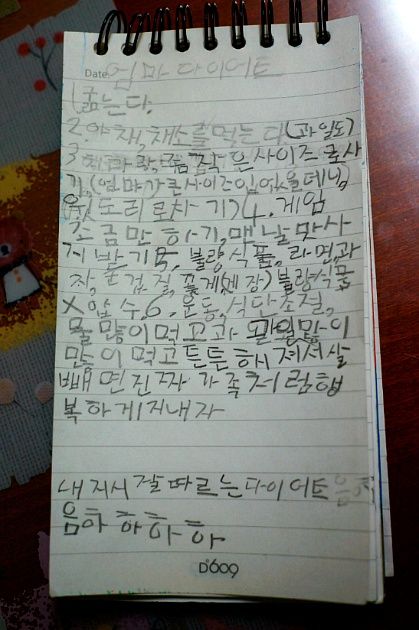 Date. 엄마 다이어트
1. 굶는다.
2. 야채, 채소를 먹는다. (과일도)
3. 작은 사이즈 옷 사
기, (엄마가 큰 사이즈 입었을 데님
윳도리로 차기) 4. 게임
조금만 하기, 맨날 맛사
지 받기 5, 불량식품, 라면, 과
자, 껍질, 꽃게(게장) 불량식품
X 압수, 6. 운동, 식단조절,
물 많이 먹고 과일 많이
많이 먹고 튼튼해져서 살
빼면 진짜 가족처럼 행
복하게 지내자
내 지시 잘 따르는 다이어트
음하하하하
D'609